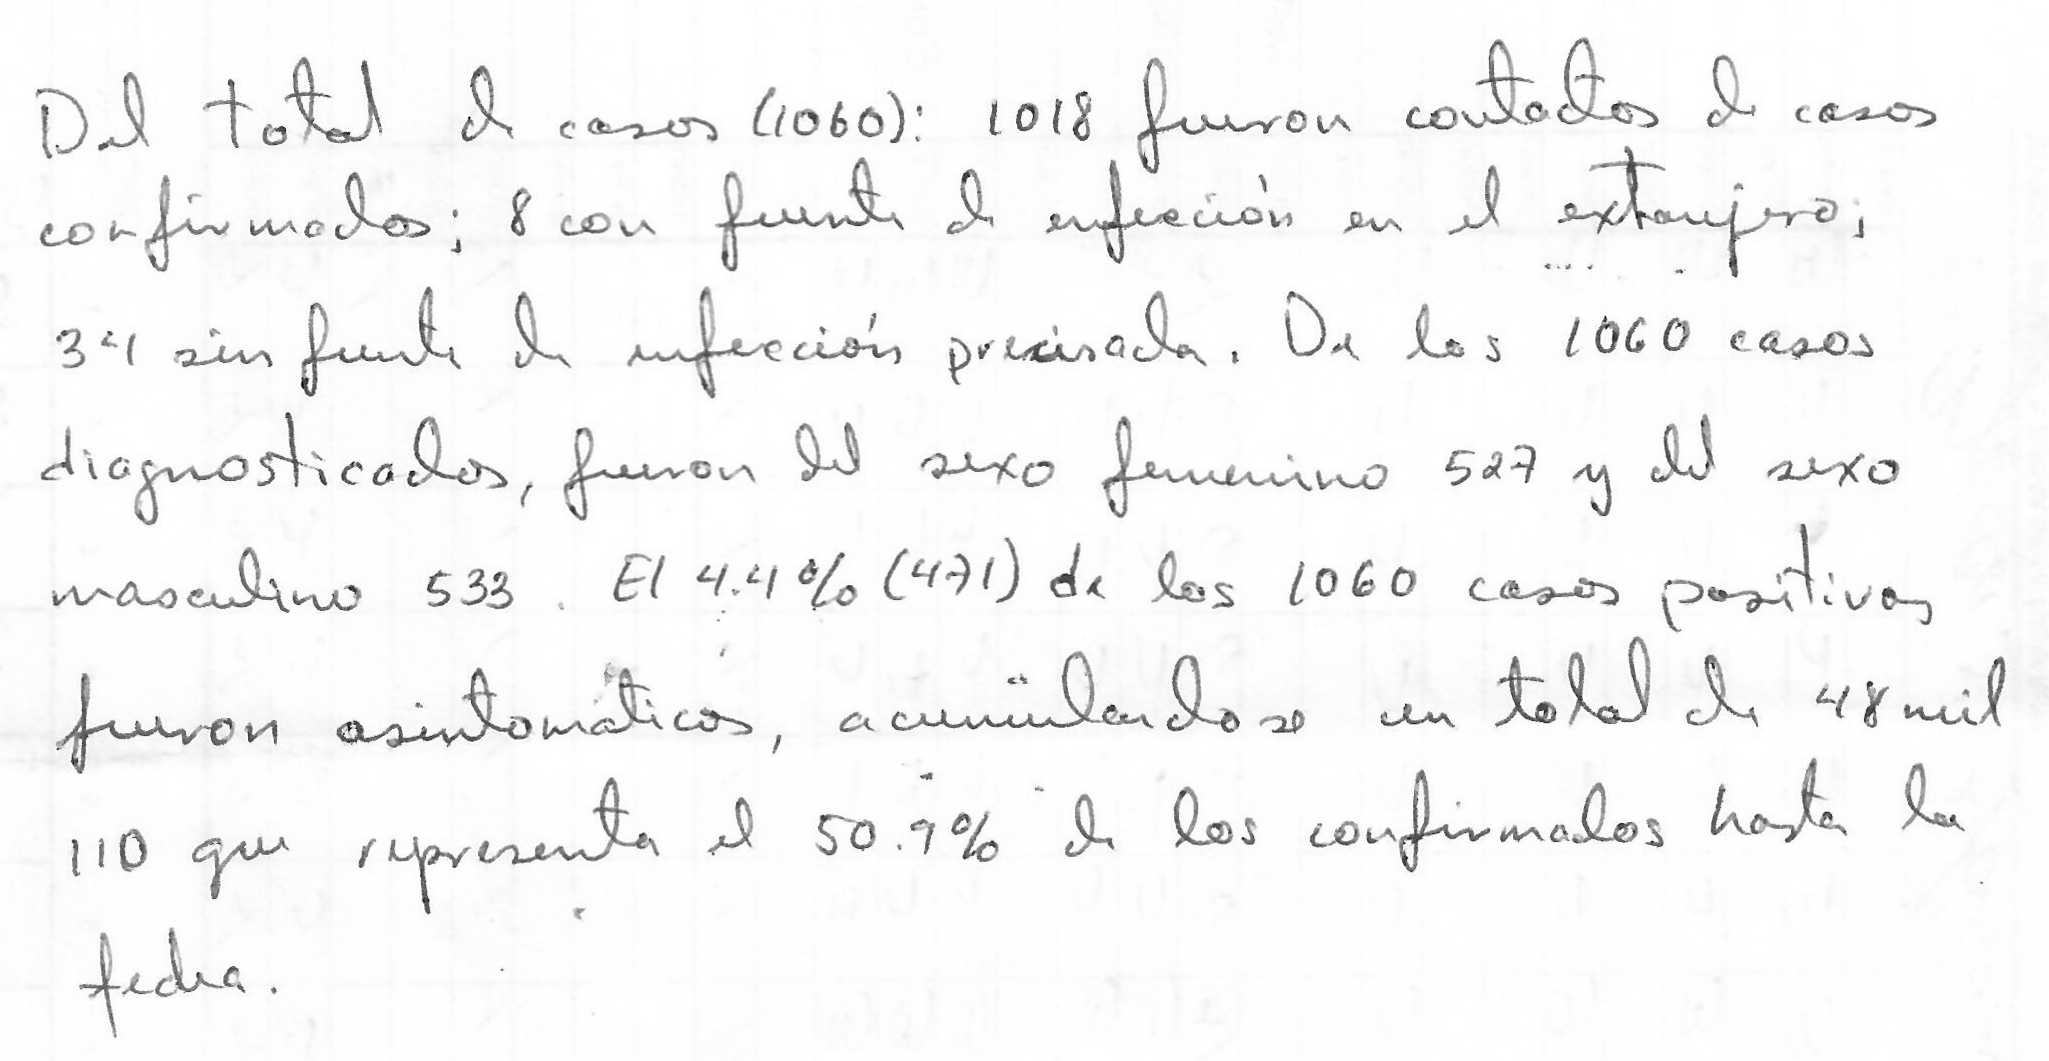 Del total de casos (1060): 1018 fueron contactos de casos
confirmados; 8 con fuente de infección en el extranjero;
34 sin fuente de infección precisada. De los 1060 casos
diagnosticados, fueron del sexo femenino 527 y del sexo
masculino 533. El 4.4% (471) de los 1060 casos positivos
fueron asintomáticos, acumulandose un total de 48 mil
110 que representa el 50.9% de los confirmados hasta la
fecha.